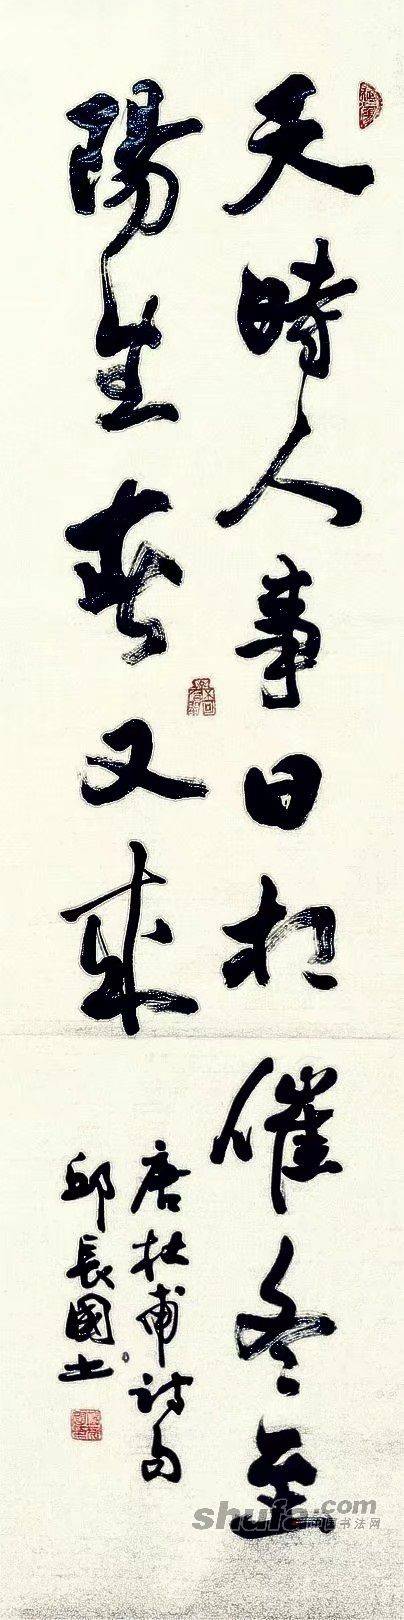 天時人事日相催冬至
陽生春又來
唐杜甫詩句
邱長國
shufa.com
中国书法网